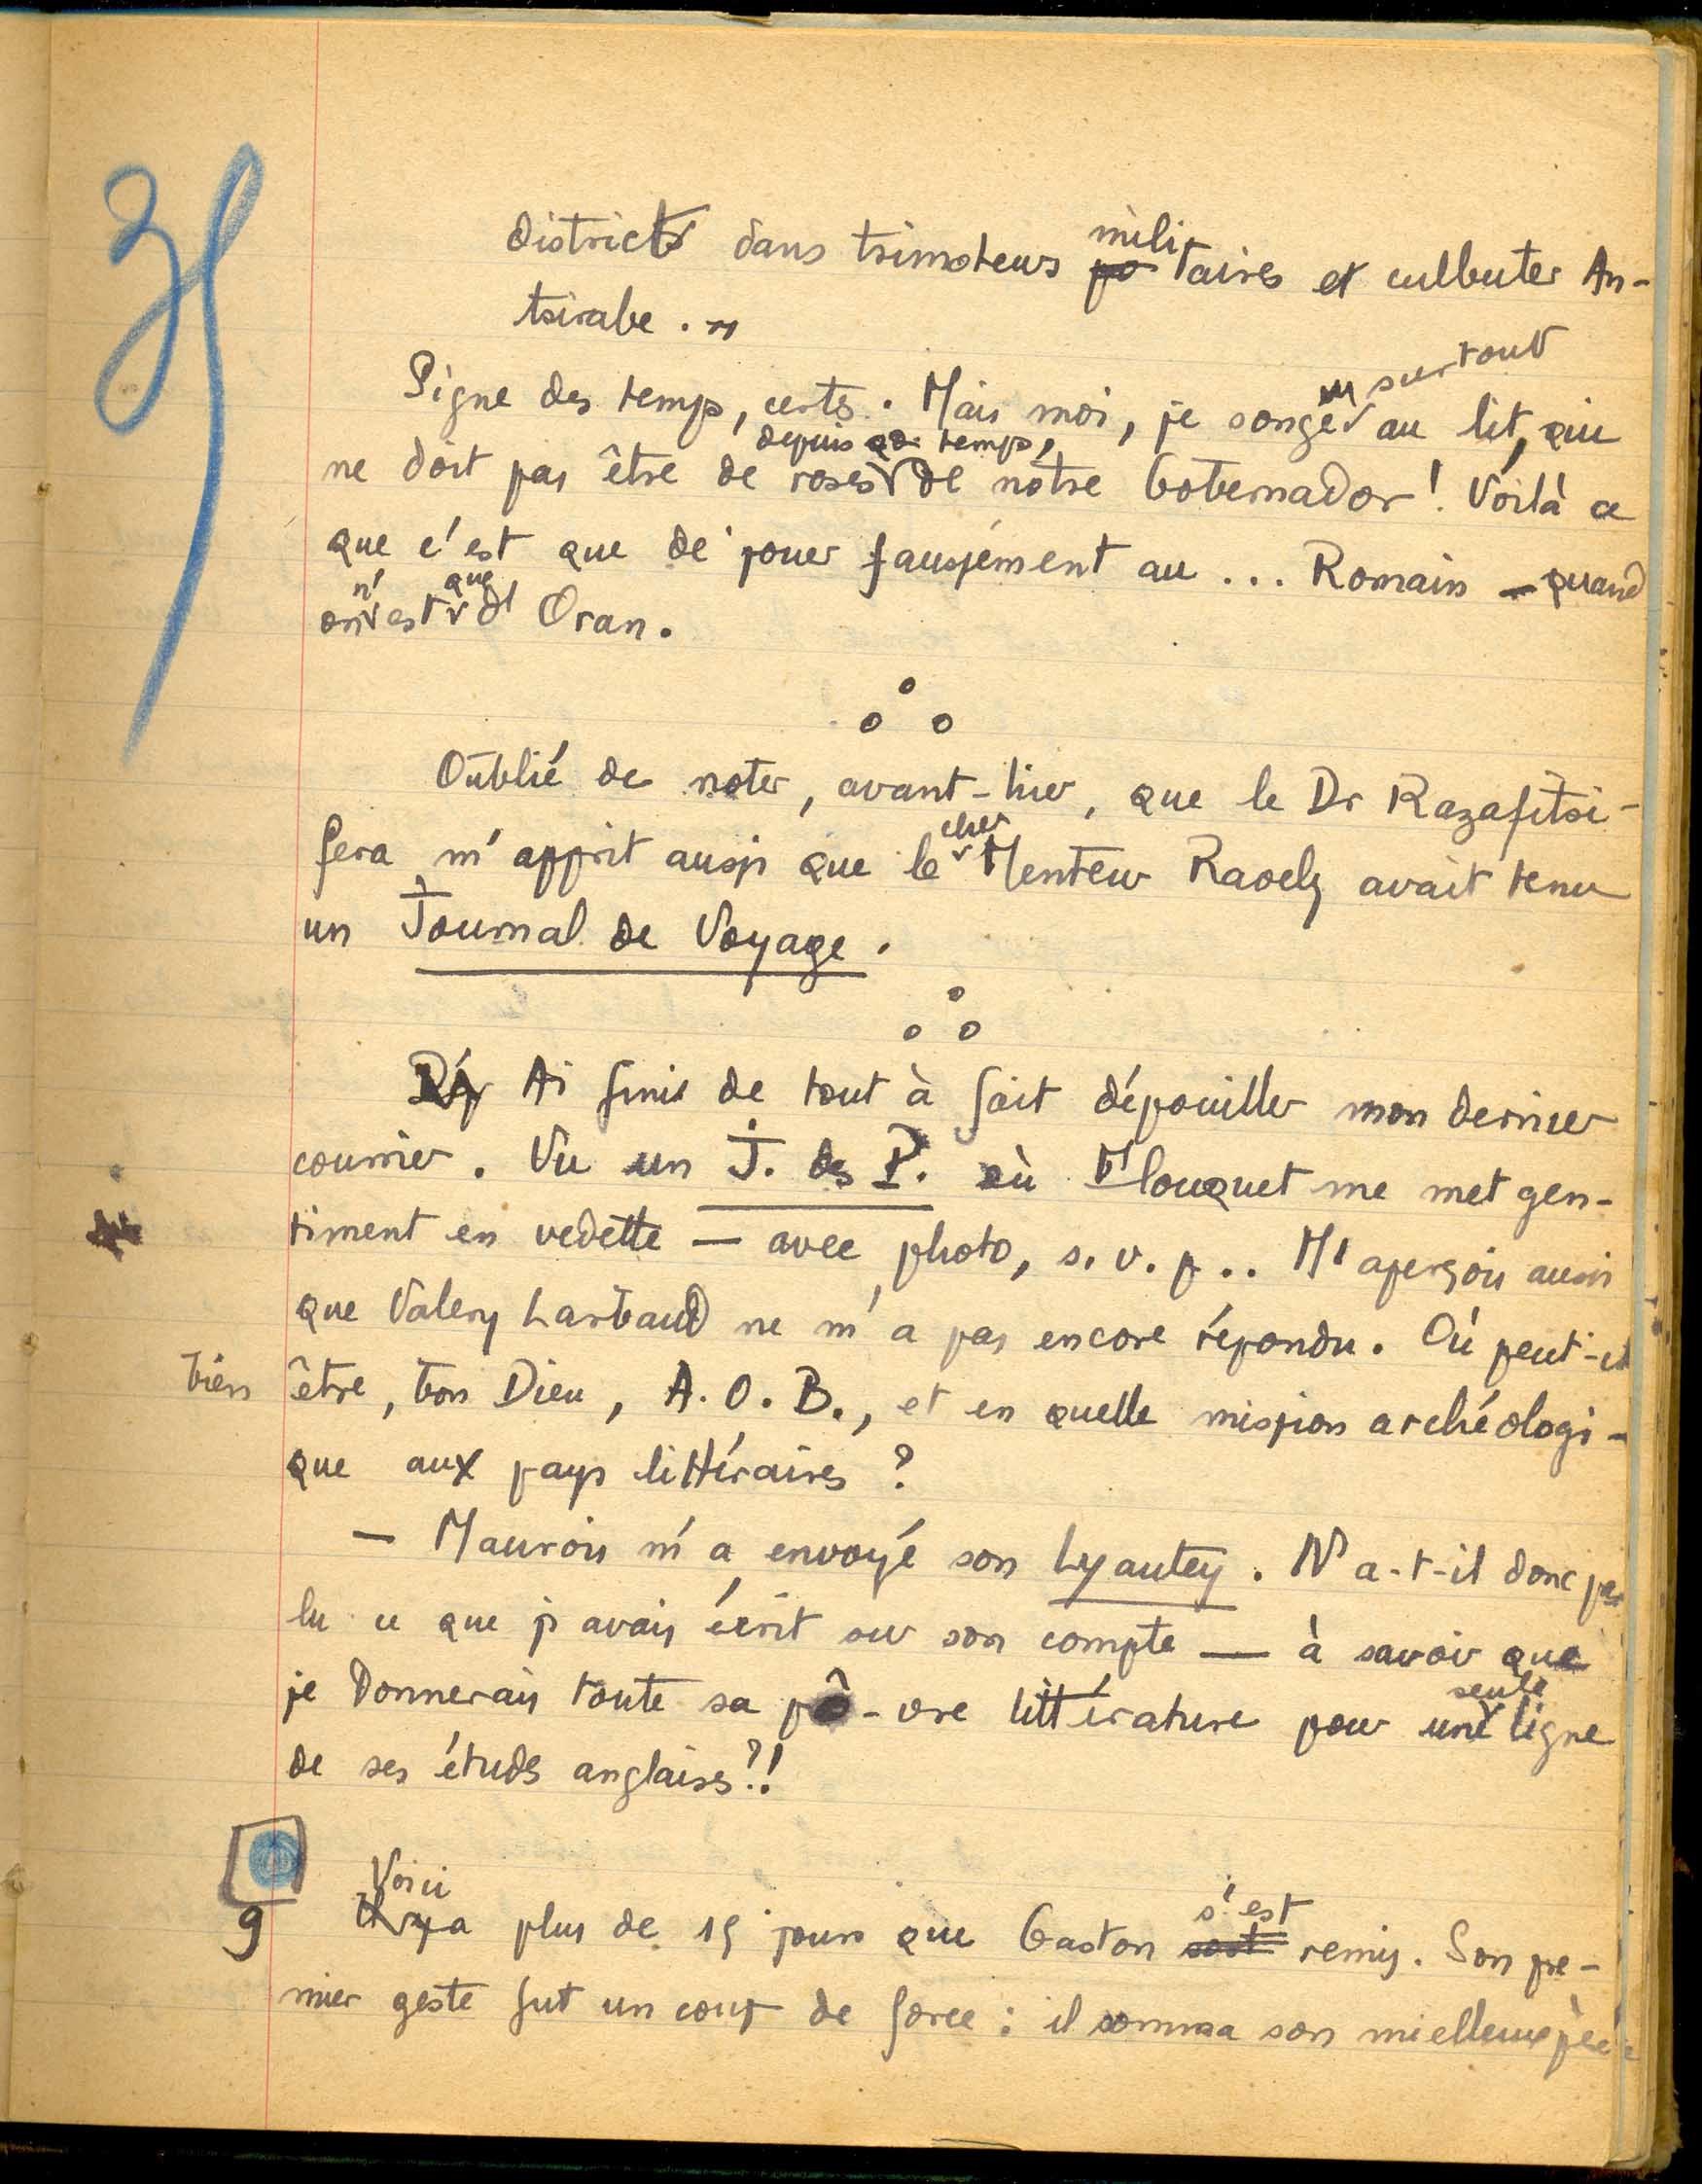 35
districts dans trimoteurs militaires et culbuter An-
tsirabe. »
Signe des temps, certes. Mais moi, je songe surtout au lit, qui
ne doit pas être de roses depuis qq. temps, de notre Gobernador ! Voilà ce
que c'est que de jouer faussement au ... Romain — quand
on n'est que d'Oran.
Oublié de noter, avant-hier, que le Dr Razafitsi-
fera m'apprit aussi que le cher Menteur Raoely avait tenu
un Journal de Voyage.
Ai fini de tout à fait dépouiller mon dernier
courrier. Vu un J. des P. où Flouquet me met gen-
timent en vedette — avec photo, s. v. p.. M'aperçois aussi
que Valery Larbaud ne m'a pas encore répondu. Où peut-il
bien être, bon Dieu, A. O. B., et en quelle mission archéologi-
que aux pays littéraires ?
— Maurois m'a envoyé son Lyautey. N'a-t-il donc pas
lu ce que j'avais écrit sur son compte — à savoir que
je donnerais toute sa pô-vre littérature pour une seule ligne
de ses études anglaises ?!
9 Voici plus de 15 jours que Gaston s'est remis. Son pre-
mier geste fut un coup de force : il somma son mielleux père